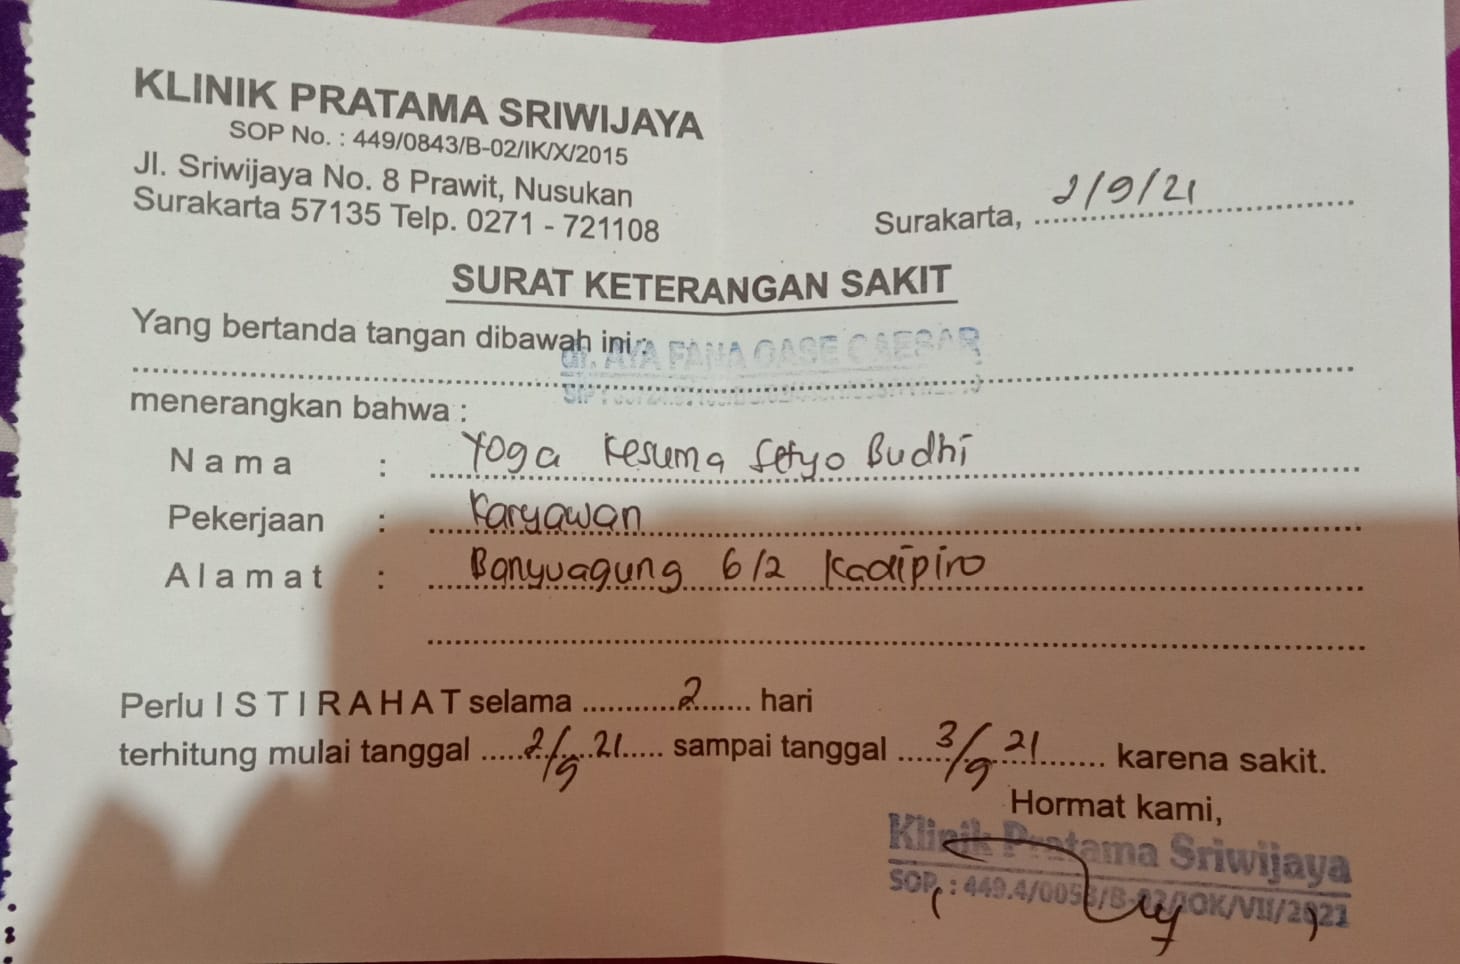 KLINIK PRATAMA SRIWIJAYA
SOP No. : 449/0843/B-02/IK/X/2015
Jl. Sriwijaya No. 8 Prawit, Nusukan
Surakarta 57135 Telp. 0271 - 721108
Surakarta, 2/9/21
SURAT KETERANGAN SAKIT
Yang bertanda tangan dibawah ini :
dr. AYA FANA OASE CAESAR
menerangkan bahwa :
Nama : Yoga Kesuma Setyo Budhi
Pekerjaan : Karyawan
Alamat : Banyuagung 6/2 Kadipiro
Perlu ISTIRAHAT selama 2 hari
terhitung mulai tanggal 2/9 21 sampai tanggal 3/9 21 karena sakit.
Hormat kami,
Klinik Pratama Sriwijaya
SOP : 449.4/0053/B-02/IOK/VII/2021